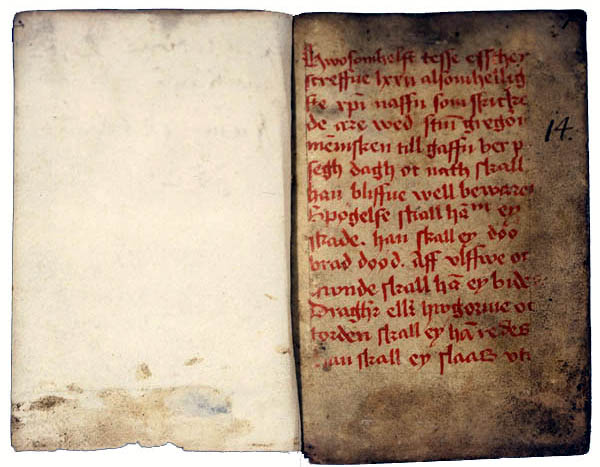 Hwosomhelst tesse effther
screffne lxxii alsomhellig
ste xpi naffn som skicke
de are wed stm̄ gregori
14.
men̄isken till gaffn ber p
segh dagh oc nath skall
han bliffue well beware
Spogelse skall ha᷒m ey
skade. han skall ey doo
brad dood. aff vlffwe oc
skall hā ey bide
Draghr ell hwgorme oc
torden skall ey hā redes
han skall ey slaas vti